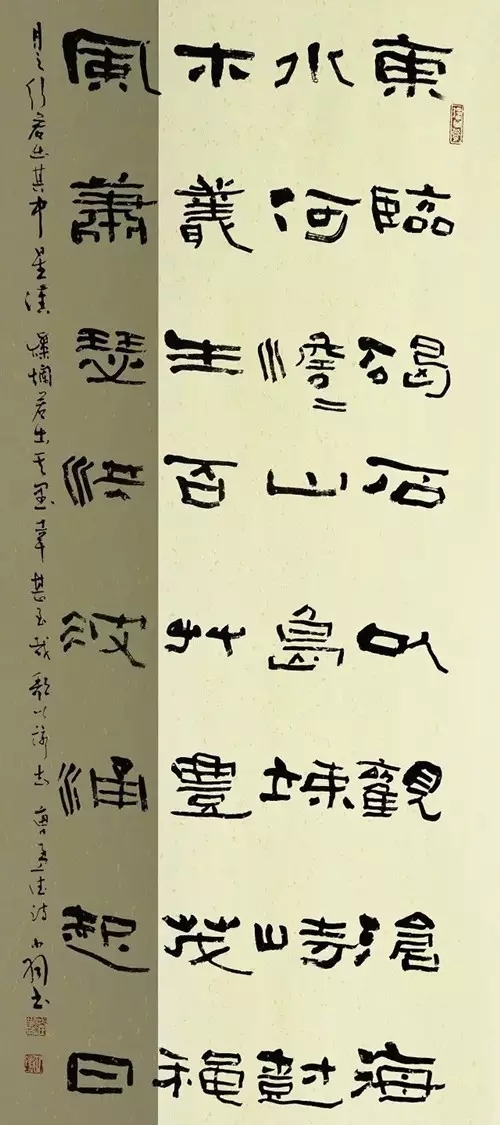 東臨碣石以觀滄海
水河澹〻山島竦峙尌
木叢生百艸豐茂穐
風蕭瑟洪波涌起日
月之行若出其中星漢燦爛若出其里幸甚至哉歌以詠志 曹孟德詩 小 書